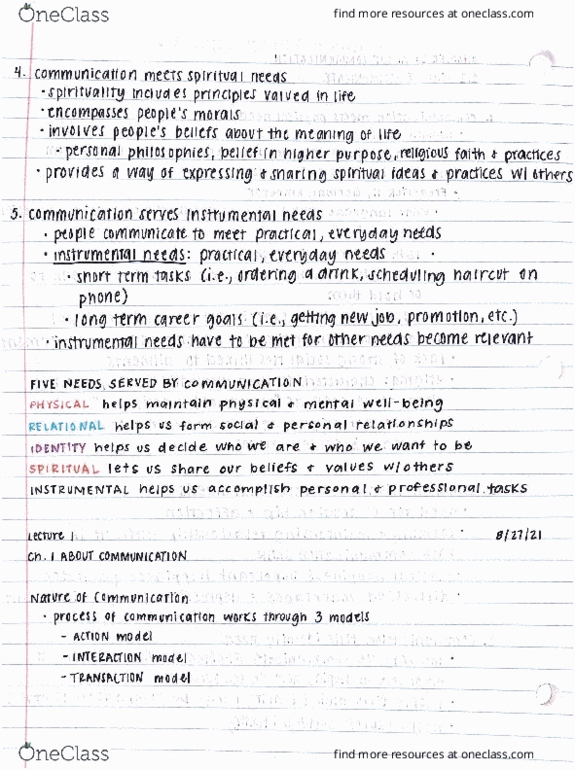 OneClass
find more resources at oneclass.com
4. communication meets spiritual needs
• spirituality includes principles valued in life
• encompasses people's morals
• involves people's beliefs about the meaning of life
- personal philosophies, belief in higher purpose, religious faith & practices
• provides a way of expressing & sharing spiritual ideas & practices w/ others
5. communication serves instrumental needs
• people communicate to meet practical, everyday needs
• instrumental needs: practical, everyday needs
• short term tasks (i.e., ordering a drink, scheduling haircut on
phone)
• long term career goals (i.e., getting new job, promotion, etc.)
• instrumental needs have to be met for other needs become relevant
FIVE NEEDS SERVED BY COMMUNICATION
PHYSICAL helps maintain physical & mental well-being
RELATIONAL helps us form social & personal relationships
IDENTITY helps us decide who we are & who we want to be
SPIRITUAL lets us share our beliefs & values w/others
INSTRUMENTAL helps us accomplish personal & professional tasks
Lecture 1 8/27/21
Ch. 1 ABOUT COMMUNICATION
Nature of Communication
• process of communication works through 3 models
- ACTION model
- INTERACTION model
- TRANSACTION model
OneClass
find more resources at oneclass.com